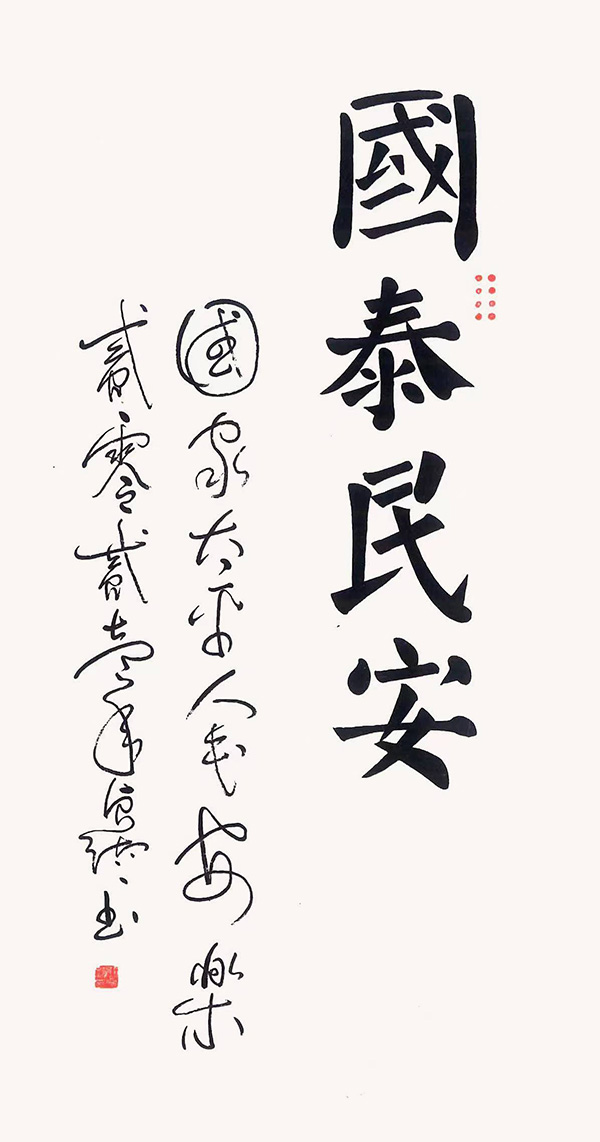 國泰民安
國家太平人民安樂
貳零貳壹年 書